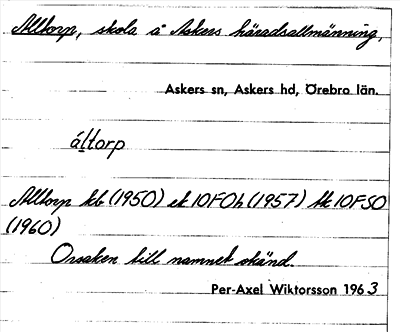 Alltorp, skola å Askers häradsallmänning,
Askers sn, Askers hd, Örebro län.
áltorp
Alltorp kb (1950) ek 10F0h (1957) tk 10FSO
(1960)
Orsaken till namnet okänd.
Per-Axel Wiktorsson 1963